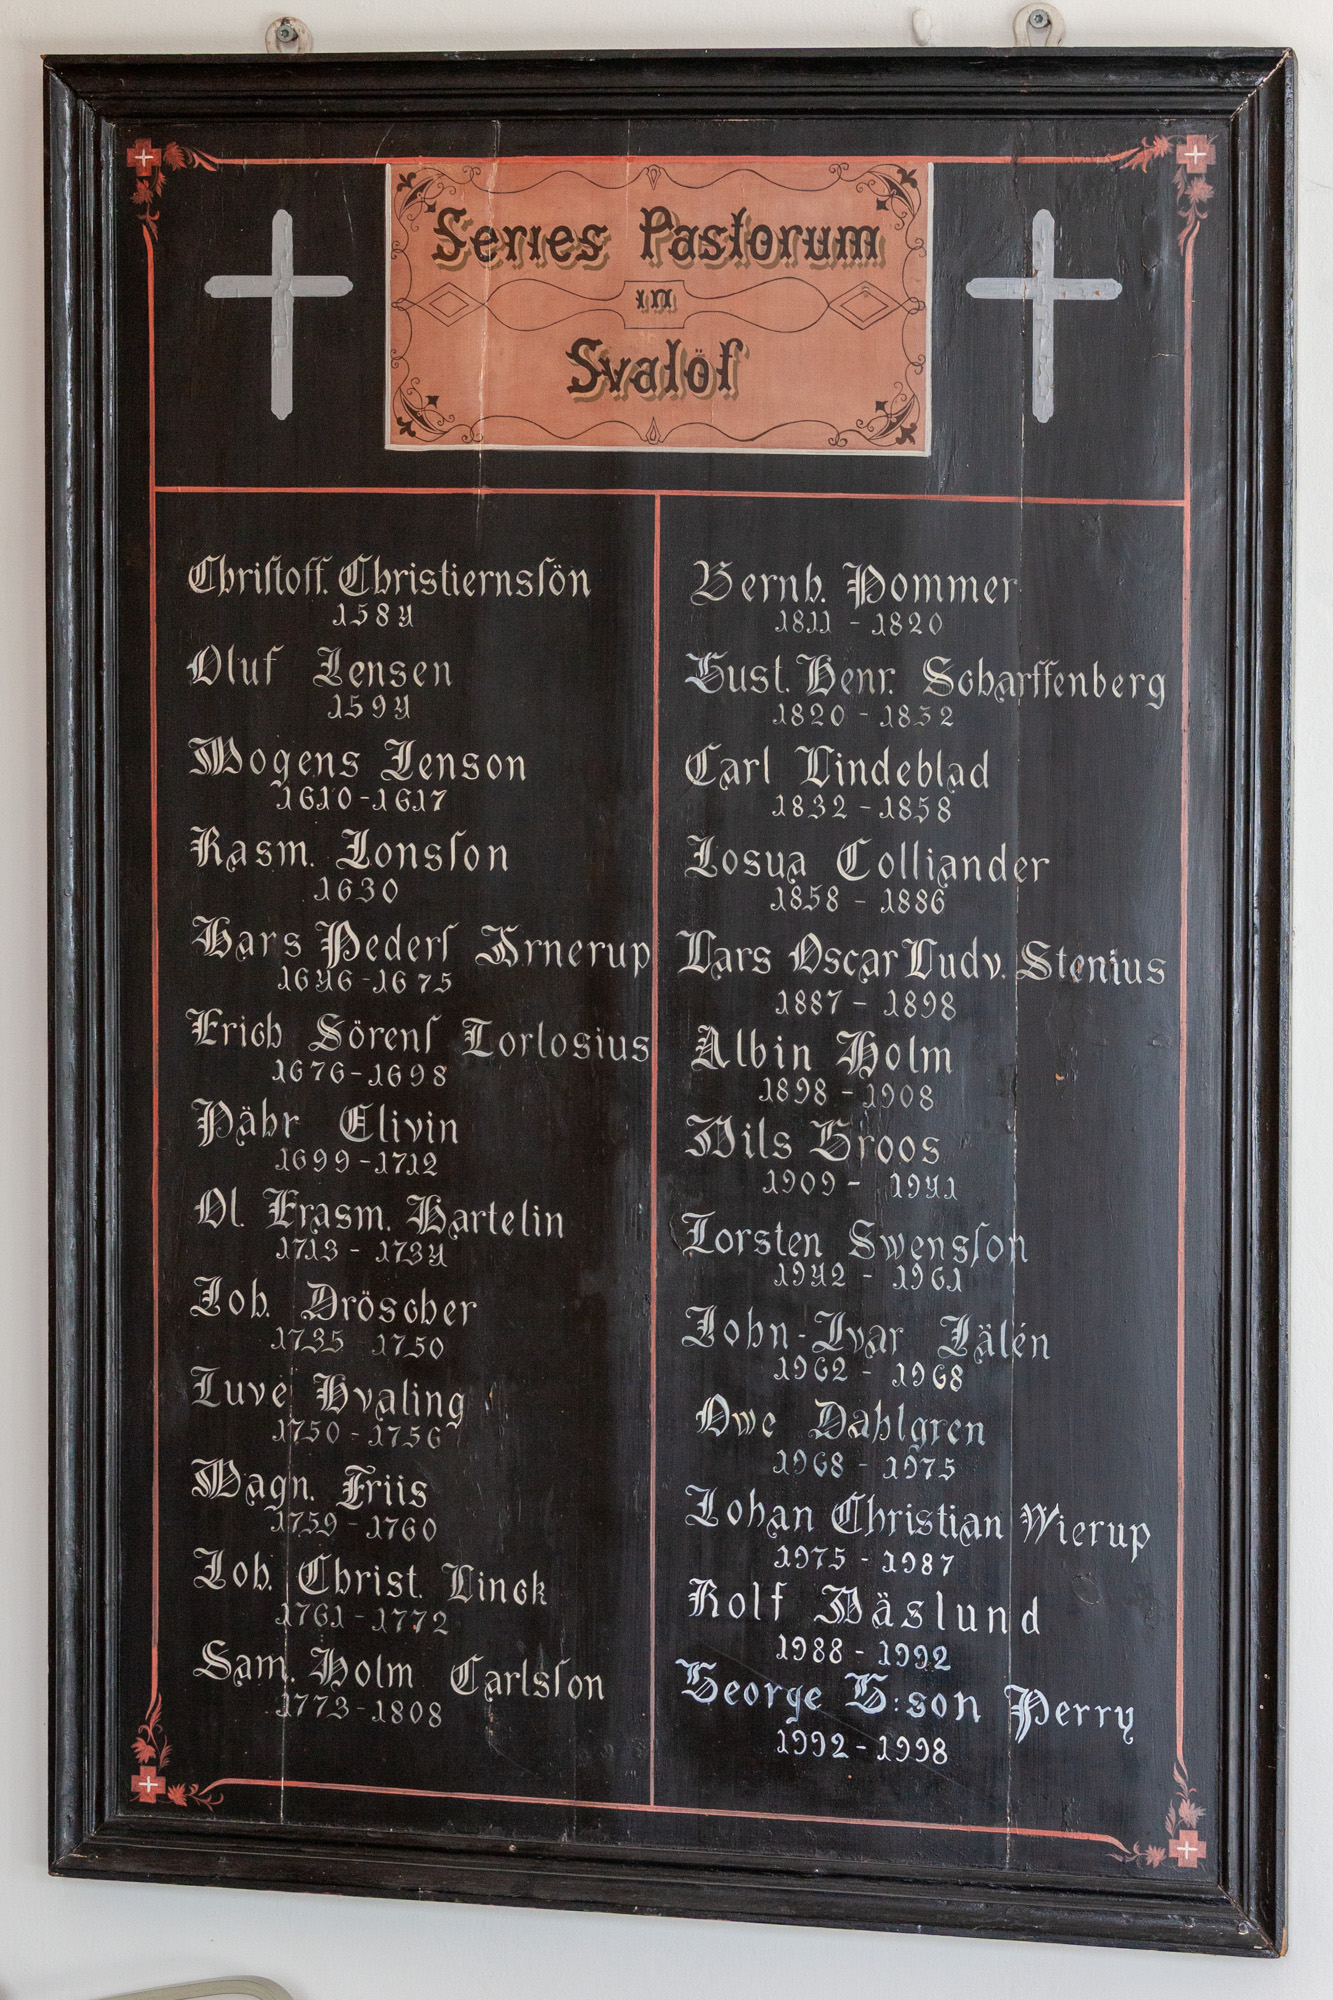 Series Pastorum
in
Svalöf
Chriſtoff. Christiernsſön
1584
Oluf Jensen
1594
Mogens Jenson
1610-1617
Rasm. Jonsſon
1630
Hars Pederſ Arnerup
1646-1675
Erich Sörenſ Torlosius
1676-1698
Pähr Elivin
1699-1712
Ol. Erasm. Hartelin
1713 - 1734
Joh. Dröscher
1735 - 1750
Tuve Hvaling
1750 - 1756
Magn. Friis
1759 - 1760
Joh. Christ. Linck
1761 - 1772
Sam. Holm Carlsſon
1773-1808
Bernh. Pommer
1811 - 1820
Gust. Henr. Scharffenberg
1820 - 1832
Carl Lindeblad
1832 - 1858
Josua Colliander
1858 - 1886
Lars Oscar Ludv. Stenius
1887 - 1898
Albin Holm
1898 - 1908
Nils Groos
1909 - 1941
Torsten Swensſon
1942 - 1961
John-Ivar Jälén
1962 - 1968
Owe Dahlgren
1968 - 1975
Johan Christian Wierup
1975 - 1987
Rolf Näslund
1988 - 1992
George G:son Perry
1992 - 1998